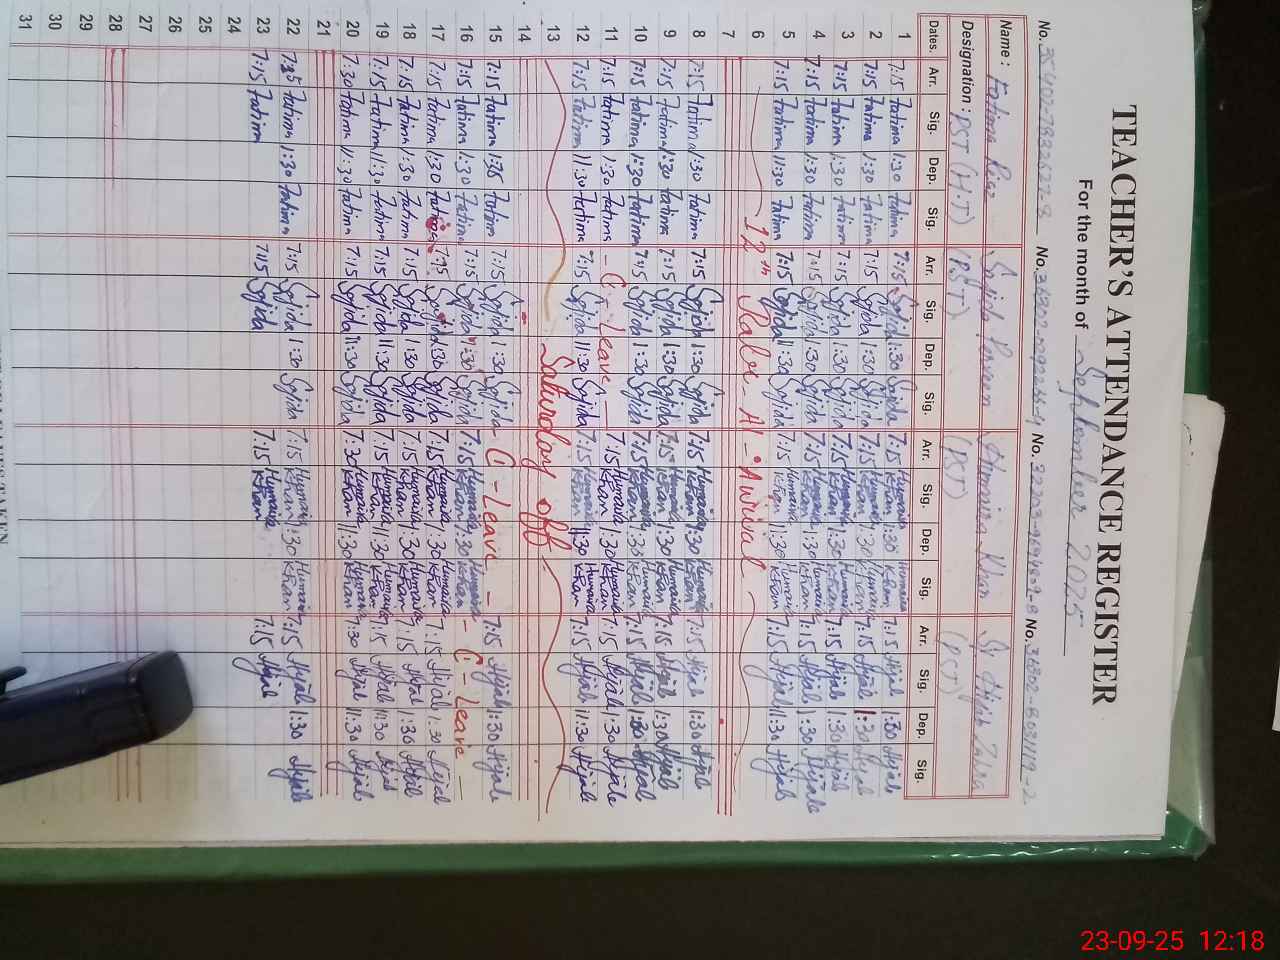 TEACHER'S ATTENDANCE REGISTER
For the month of September 2025
No. No. No. No.
Name: Fatima Sajida Perveen Humaira Khan Hijab Zahra
Designation: PST (H.T) (PST) (PST) (PST)
Dates. Arr. Sig. Dep. Sig. Arr. Sig. Dep. Sig. Arr. Sig. Dep. Sig. Arr. Sig. Dep. Sig.
1 7:15 Fatima 1:30 Fatima 7:15 Sajida 1:30 Sajida 7:15 Humaira Khan 1:30 Humaira Khan 7:15 Hijab 1:30 Hijab
2 7:15 Fatima 1:30 Fatima 7:15 Sajida 1:30 Sajida 7:15 Humaira Khan 1:30 Humaira Khan 7:15 Hijab 1:30 Hijab
3 7:15 Fatima 1:30 Fatima 7:15 Sajida 1:30 Sajida 7:15 Humaira Khan 1:30 Humaira Khan 7:15 Hijab 1:30 Hijab
4 7:15 Fatima 1:30 Fatima 7:15 Sajida 1:30 Sajida 7:15 Humaira Khan 1:30 Humaira Khan 7:15 Hijab 1:30 Hijab
5 7:15 Fatima 11:30 Fatima 7:15 Sajida 11:30 Sajida 7:15 Humaira Khan 11:30 Humaira Khan 7:15 Hijab 11:30 Hijab
6 12th Rabi-Al-Awival
7
8 7:15 Fatima 1:30 Fatima 7:15 Sajida 1:30 Sajida 7:15 Humaira Khan 1:30 Humaira Khan 7:15 Hijab 1:30 Hijab
9 7:15 Fatima 1:30 Fatima 7:15 Sajida 1:30 Sajida 7:15 Humaira Khan 1:30 Humaira Khan 7:15 Hijab 1:30 Hijab
10 7:15 Fatima 1:30 Fatima 7:15 Sajida 1:30 Sajida 7:15 Humaira Khan 1:30 Humaira Khan 7:15 Hijab 1:30 Hijab
11 7:15 Fatima 1:30 Fatima - C-Leave - 7:15 Humaira Khan 1:30 Humaira Khan 7:15 Hijab 1:30 Hijab
12 7:15 Fatima 11:30 Fatima 7:15 Sajida 11:30 Sajida 7:15 Humaira Khan 11:30 Humaira Khan 7:15 Hijab 11:30 Hijab
13 Saturday off
14
15 7:15 Fatima 1:30 Fatima 7:15 Sajida 1:30 Sajida - C-Leave - 7:15 Hijab 1:30 Hijab
16 7:15 Fatima 1:30 Fatima 7:15 Sajida 1:30 Sajida 7:15 Humaira Khan 1:30 Humaira Khan - C-Leave -
17 7:15 Fatima 1:30 Fatima 7:15 Sajida 1:30 Sajida 7:15 Humaira Khan 1:30 Humaira Khan 7:15 Hijab 1:30 Hijab
18 7:15 Fatima 1:30 Fatima 7:15 Sajida 1:30 Sajida 7:15 Humaira Khan 1:30 Humaira Khan 7:15 Hijab 1:30 Hijab
19 7:15 Fatima 11:30 Fatima 7:15 Sajida 11:30 Sajida 7:15 Humaira Khan 11:30 Humaira Khan 7:15 Hijab 11:30 Hijab
20 7:30 Fatima 11:30 Fatima 7:15 Sajida 11:30 Sajida 7:30 Humaira Khan 11:30 Humaira Khan 7:30 Hijab 11:30 Hijab
21
22 7:15 Fatima 1:30 Fatima 7:15 Sajida 1:30 Sajida 7:15 Humaira Khan 1:30 Humaira Khan 7:15 Hijab 1:30 Hijab
23 7:15 Fatima 7:15 Sajida 7:15 Humaira Khan 7:15 Hijab
24
25
26
27
28
29
30
31
23-09-25 12:18